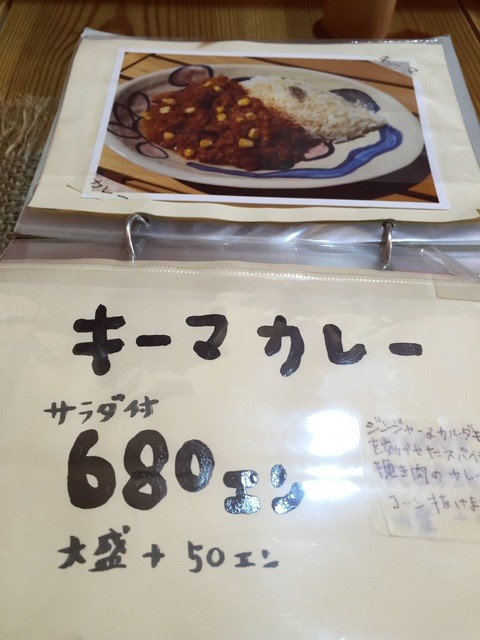 キーマカレー
サラダ付
680エン
大盛 + 50エン
ジンジャー&カルダモ
を効かせたスパイ
挽き肉のカレー
コーン抜けま